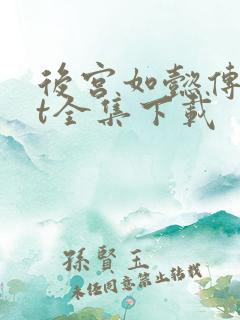 後宮如懿傳
t全集下載
孫賢玉
未经同意禁止转载